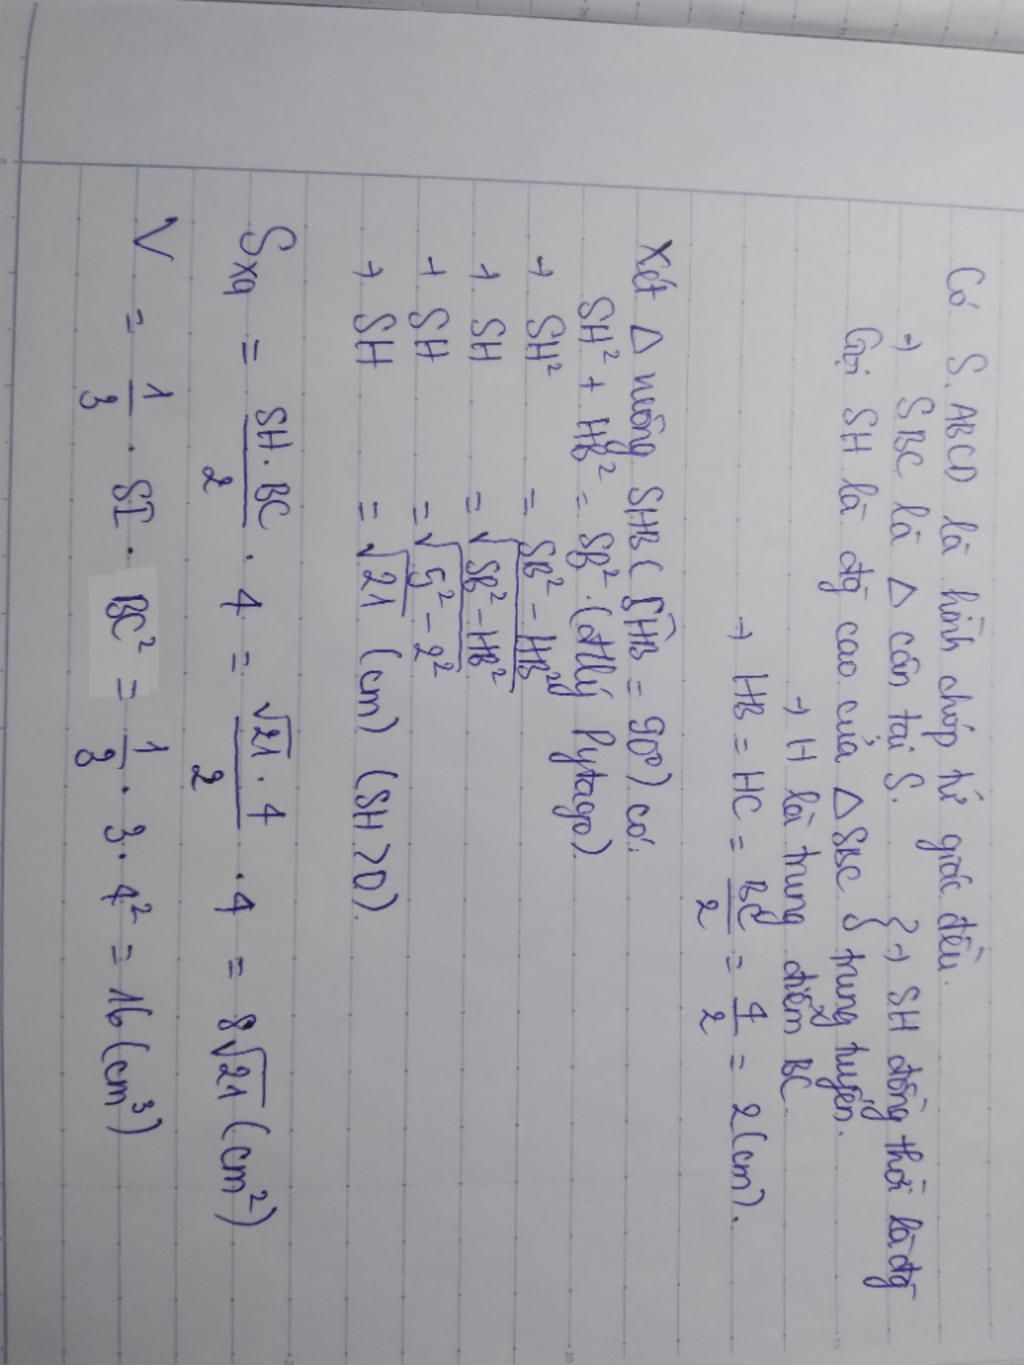 Có S.ABCD là hình chóp tứ giác đều.
→ SBC là △ cân tại S. } → SH đồng thời là đg
Gọi SH là đg cao của △SBC trung tuyến.
→ H là trung điểm BC
→ HB = HC = BC/2 = 4/2 = 2(cm).
Xét △ vuông SHB (SHB̂ = 90°) có:
SH² + HB² = SB² (đlý Pytago).
→ SH² = SB² - HB²
→ SH = √(SB² - HB²)
→ SH = √(5² - 2²)
→ SH = √21 (cm) (SH > 0).
Sxq = SH.BC/2 . 4 = √21.4/2 . 4 = 8√21 (cm²)
V = 1/3 . SI . BC² = 1/3 . 3 . 4² = 16 (cm³)